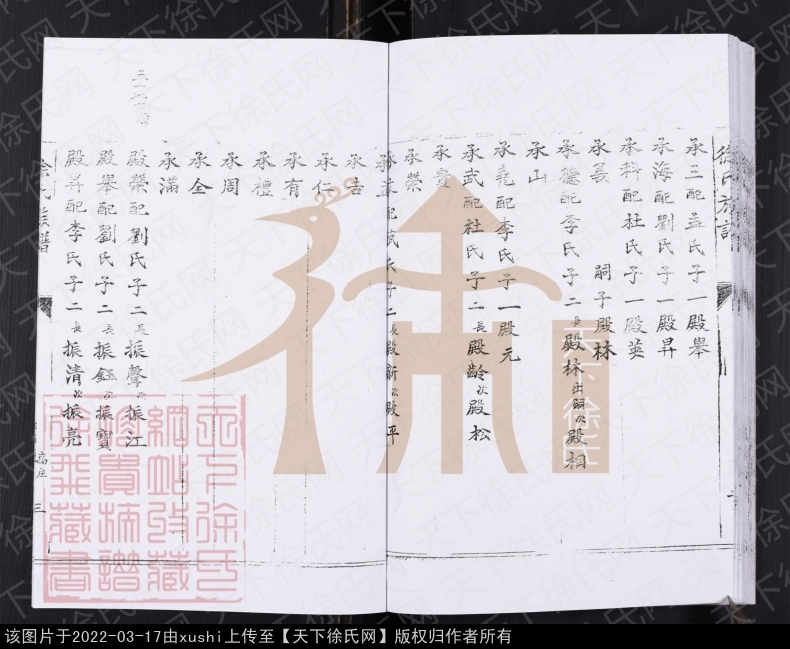 徐氏族譜
承三配孟氏子一殿舉
承海配劉氏子一殿昇
承科配杜氏子一殿英
承義 嗣子殿林
承德配李氏子二長殿林出嗣次殿相
承山
承堯配李氏子一殿元
承武配杜氏子二長殿齡次殿松
承
承榮
承 配武氏子二長殿新次殿平
承吉
承仁
承有
承禮
承周
承全
承滿
殿榮配劉氏子二長振聲次振江
殿舉配劉氏子二長振鈺次振寶
殿昇配李氏子二長振清次振亮
徐氏族譜
高庄
三
天下徐氏
天下徐氏网
该图片于2022-03-17由xushi上传至【天下徐氏网】版权归作者所有